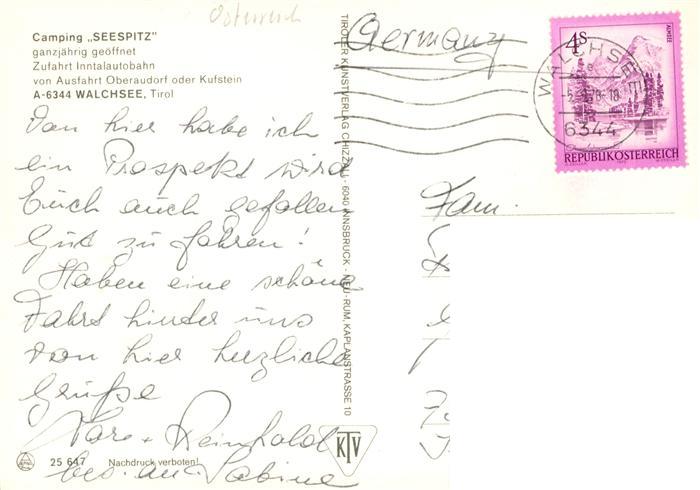 Österreich
Camping „SEESPITZ"
ganzjährig geöffnet
Zufahrt Inntalautobahn
von Ausfahrt Oberaudorf oder Kufstein
A-6344 WALCHSEE, Tirol
Von hier habe ich
ein Prospekt wird
Euch auch gefallen
Gut zu fahren!
Haben eine schöne
Fahrt hinter uns
Von hier herzliche
Grüße
Reinhold
bes. an Sabine
25 647
Nachdruck verboten!
TIROLER KUNSTVERLAG CHIZZALI - 6040 INNSBRUCK - NEU-RUM, KAPLANSTRASSE 10
KTV
Germany
4S
ALMSEE
WALCHSEE
6344
REPUBLIK ÖSTERREICH
Fam.